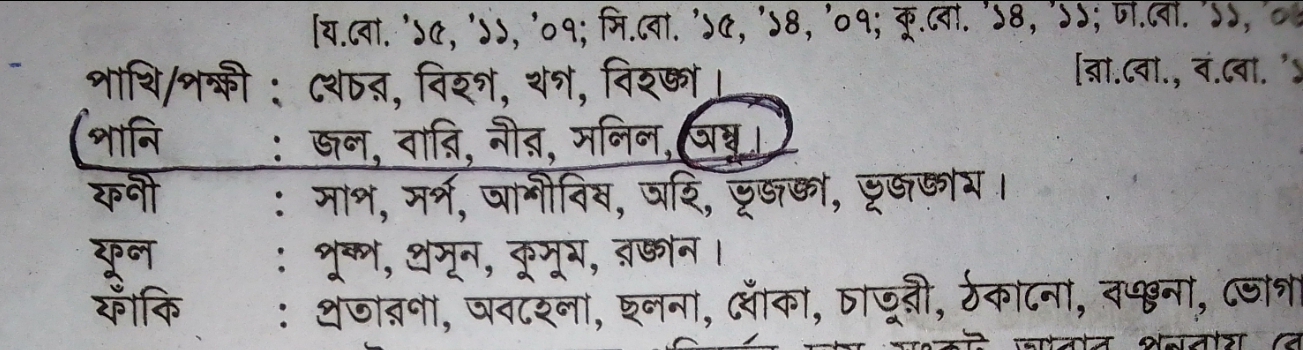 [য.বো. '১৫, '১১, '০৭; সি.বো. '১৫, '১৪, '০৭; কু.বো. '১৪, '১১; ঢা.বো. '১১,
[রা.বো., ব.বো.
পাখি/পক্ষী : খেচর, বিহগ, খগ, বিহঙ্গ।
পানি : জল, বারি, নীর, সলিল, অম্বু।
ফণী : সাপ, সর্প, আশীবিষ, অহি, ভূজঙ্গ, ভূজঙ্গম।
ফুল : পুষ্প, প্রসূন, কুসুম, রঙ্গন।
ফাঁকি : প্রতারণা, অবহেলা, ছলনা, ধোঁকা, চাতুরী, ঠকানো, বঞ্চনা,